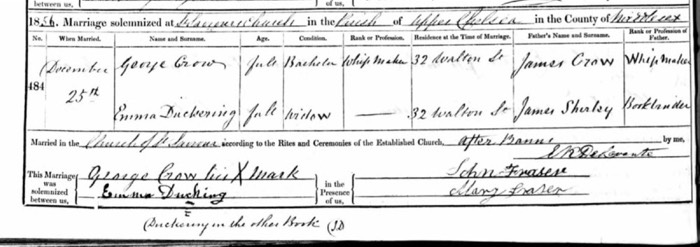 between us, of us,
1856. Marriage solemnized at Saviours Church in the Parish of Upper Chelsea in the County of Middlesex
No. When Married. Name and Surname. Age. Condition. Rank or Profession. Residence at the Time of Marriage. Father's Name and Surname. Rank or Profession of Father.
December George Crow full Bachelor Whip Maker 32 Walton St James Crow Whip Maker
484
25th Emma Duckering full Widow — 32 Walton St James Shirley Bookbinder
Married in the Church of St Saviour according to the Rites and Ceremonies of the Established Church, after Banns by me,
This Marriage was solemnized between us, George Crow his X Mark in the Presence of us, John Fraser
Emma Ducking Mary Fraser
Duckering in the other Book